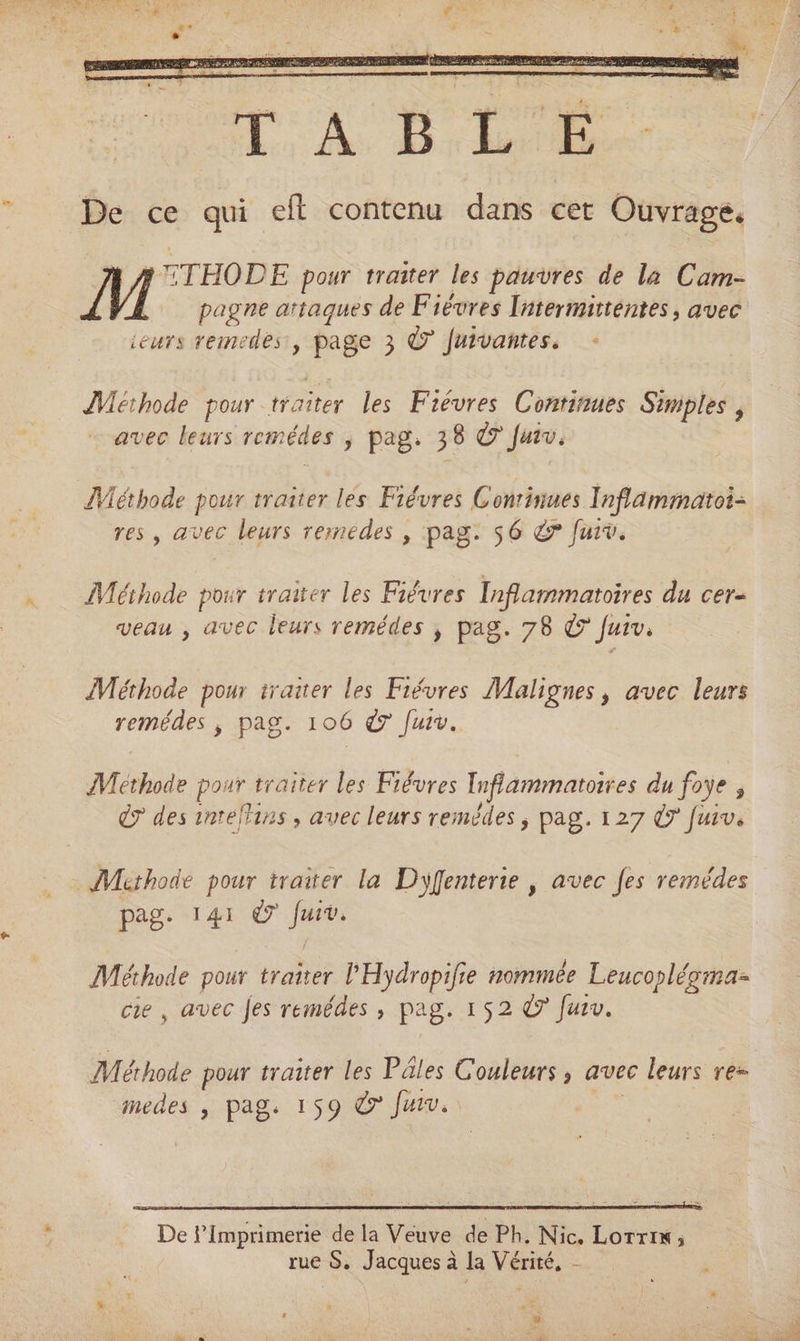 TABLE
De ce qui eſt contenu dans cet Ouvrage.
METHODE pour traiter les pauvres de la Cam-
pagne attaqués de Fiévres Intermittentes, avec
leurs remedes, page 3 & ſuivantes.
Méthode pour traiter les Fiévres Continues Simples,
avec leurs remédes, pag. 38 & ſuiv.
Méthode pour traiter les Fiévres Continues Inflammatoi-
res, avec leurs remedes, pag. 56 & ſuiv.
Méthode pour traiter les Fiévres Inflammatoires du cer-
veau, avec leurs remédes, pag. 78 & ſuiv.
Méthode pour traiter les Fiévres Malignes, avec leurs
remédes, pag. 106 & ſuiv.
Méthode pour traiter les Fiévres Inflammatoires du foye,
& des inteſtins, avec leurs remédes, pag. 127 & ſuiv.
Méthode pour traiter la Dyſſenterie, avec ſes remédes
pag. 141 & ſuiv.
Méthode pour traiter l'Hydropiſie nommée Leucoplégma-
cie, avec ſes remédes, pag. 152 & ſuiv.
Méthode pour traiter les Pâles Couleurs, avec leurs re-
medes, pag. 159 & ſuiv.
De l'Imprimerie de la Veuve de Ph. Nic. LOTTIN,
rue S. Jacques à la Vérité.